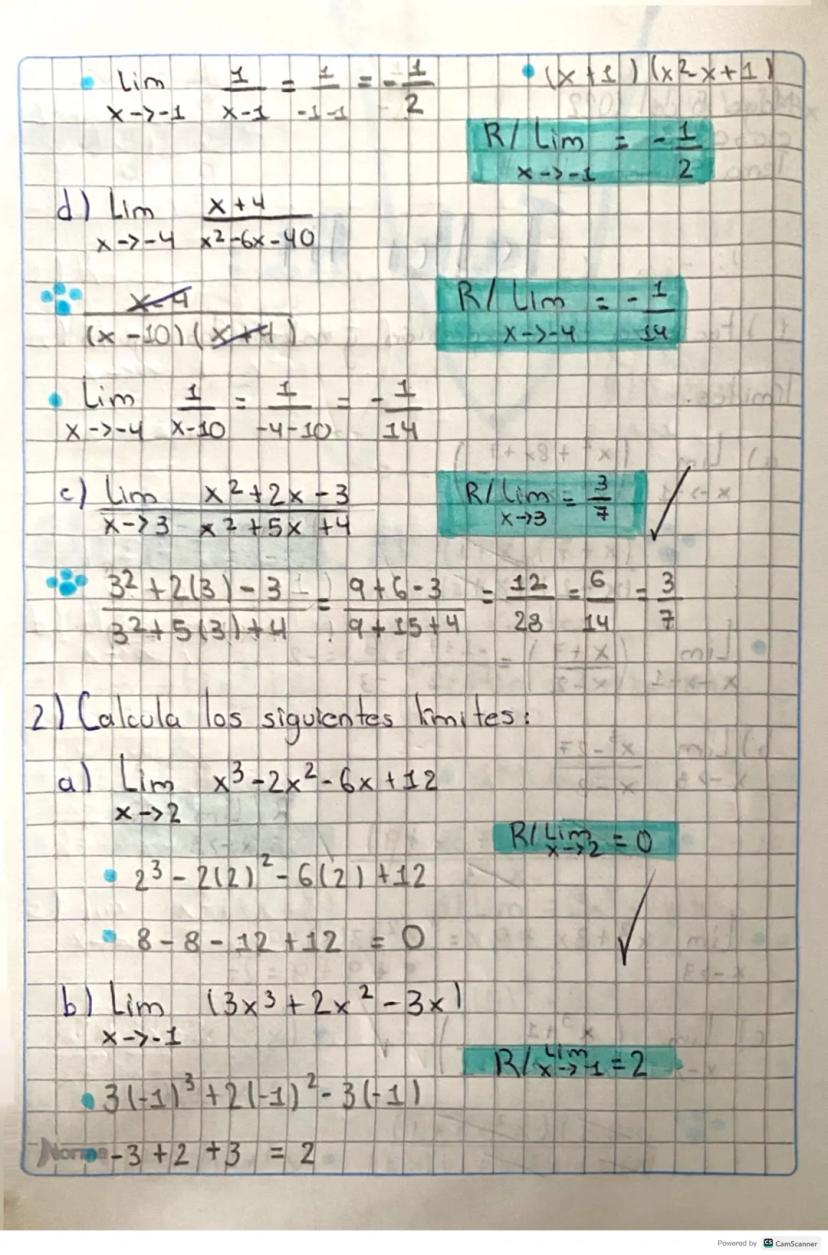 • Lim 1/x-1 = 1/-1-1 = -1/2 • (x+1)(x2-x+1)
x->-1
R/ Lim = -1/2
x->-1
d) Lim x+4/x2-6x-40
x->-4
x-4/(x-10)(x+4)
R/ Lim = -1/14
x->-4
• Lim 1/x-10 = 1/-4-10 = -1/14
x->-4
e) Lim x2+2x-3/x2+5x+4
x->3
R/Lim = 3/7
x->3
3²+2(3)-3/3²+5(3)+4 = 9+6-3/9+15+4 = 12/28 = 6/14 = 3/7
2) Calcula los siguientes límites:
a) Lim x³-2x²-6x+12
x->2
R/Lim = 0
x->2
• 2³-2(2)²-6(2)+12
• 8-8-12+12 = 0
b) Lim (3x³+2x²-3x)
x->-1
R/Lim = 2
x->-1
• 3(-1)³+2(-1)²-3(-1)
Norma • -3+2+3 = 2
Powered by CS CamScanner